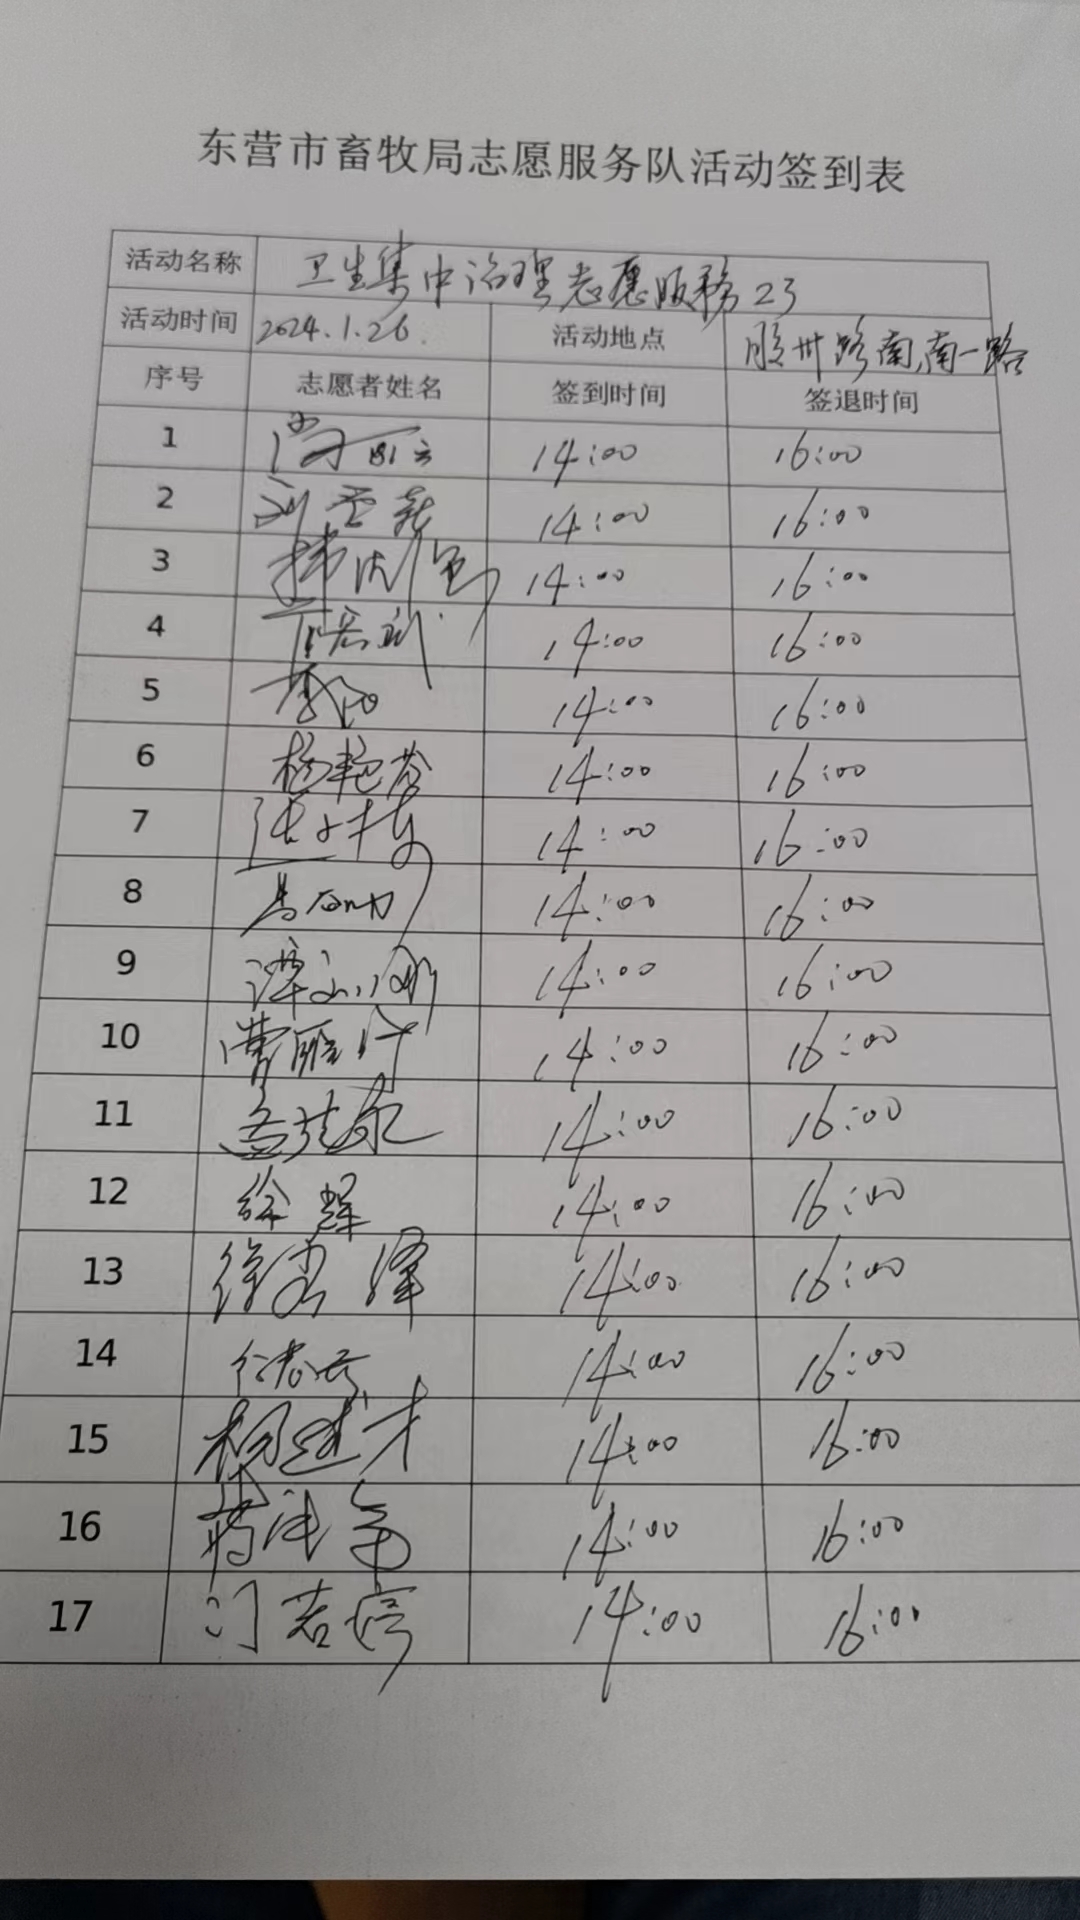 东营市畜牧局志愿服务队活动签到表
活动名称 卫生集中治理志愿服务23
活动时间 2024.1.26. 活动地点 胶州路南,南一路
序号 志愿者姓名 签到时间 签退时间
1 14:00 16:00
2 刘 14:00 16:00
3 韩 14:00 16:00
4 14:00 16:00
5 李 14:00 16:00
6 杨艳芬 14:00 16:00
7 张 14:00 16:00
8 马 14:00 16:00
9 谭 14:00 16:00
10 曹雁 14:00 16:00
11 孟 14:00 16:00
12 徐辉 14:00 16:00
13 徐 泽 14:00 16:00
14 14:00 16:00
15 杨建才 14:00 16:00
16 蒋 14:00 16:00
17 门若婷 14:00 16:00